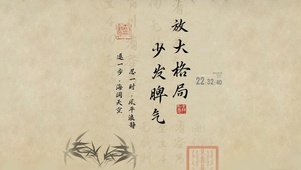 放大格局
少发脾气
忍一时，风平浪静
退一步，海阔天空
22:32:40